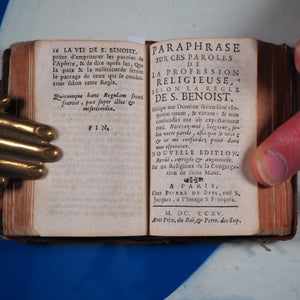 16 LA VIE DE S. BENOIST,
point d'emprunter les paroles de
l'Apôtre, & de dire après lui, Que
la paix & la miséricorde seront
le partage de ceux qui se condui-
ront selon cette Regle.
Quicumque hanc Regulam secuti
fuerint, pax super illos &
misericordia.
FIN.
PARAPHRASE
SUR CES PAROLES
DE
LA PROFESSION
RELIGIEUSE,
SELON LA REGLE
DE S. BENOIST.
Suscipe me Domine secundùm elo-
quium tuum, & vivam: & non
confundas me ab expectatione
meâ. Recevez-moi, Seigneur, se-
lon votre parole, afin que je vive;
& ne me confondez point dans
mon esperance.
NOUVELLE EDITION,
Revûë, corrigée & augmentée.
Par un Religieux de la Congrega-
tion de saint Maur.
A PARIS,
Chez PIERRE DE BATS, ruë S.
Jacques, à l'Image S. François.
M. DC. CCXV.
Avec Priv. du Roi, & Perm. des Sup.